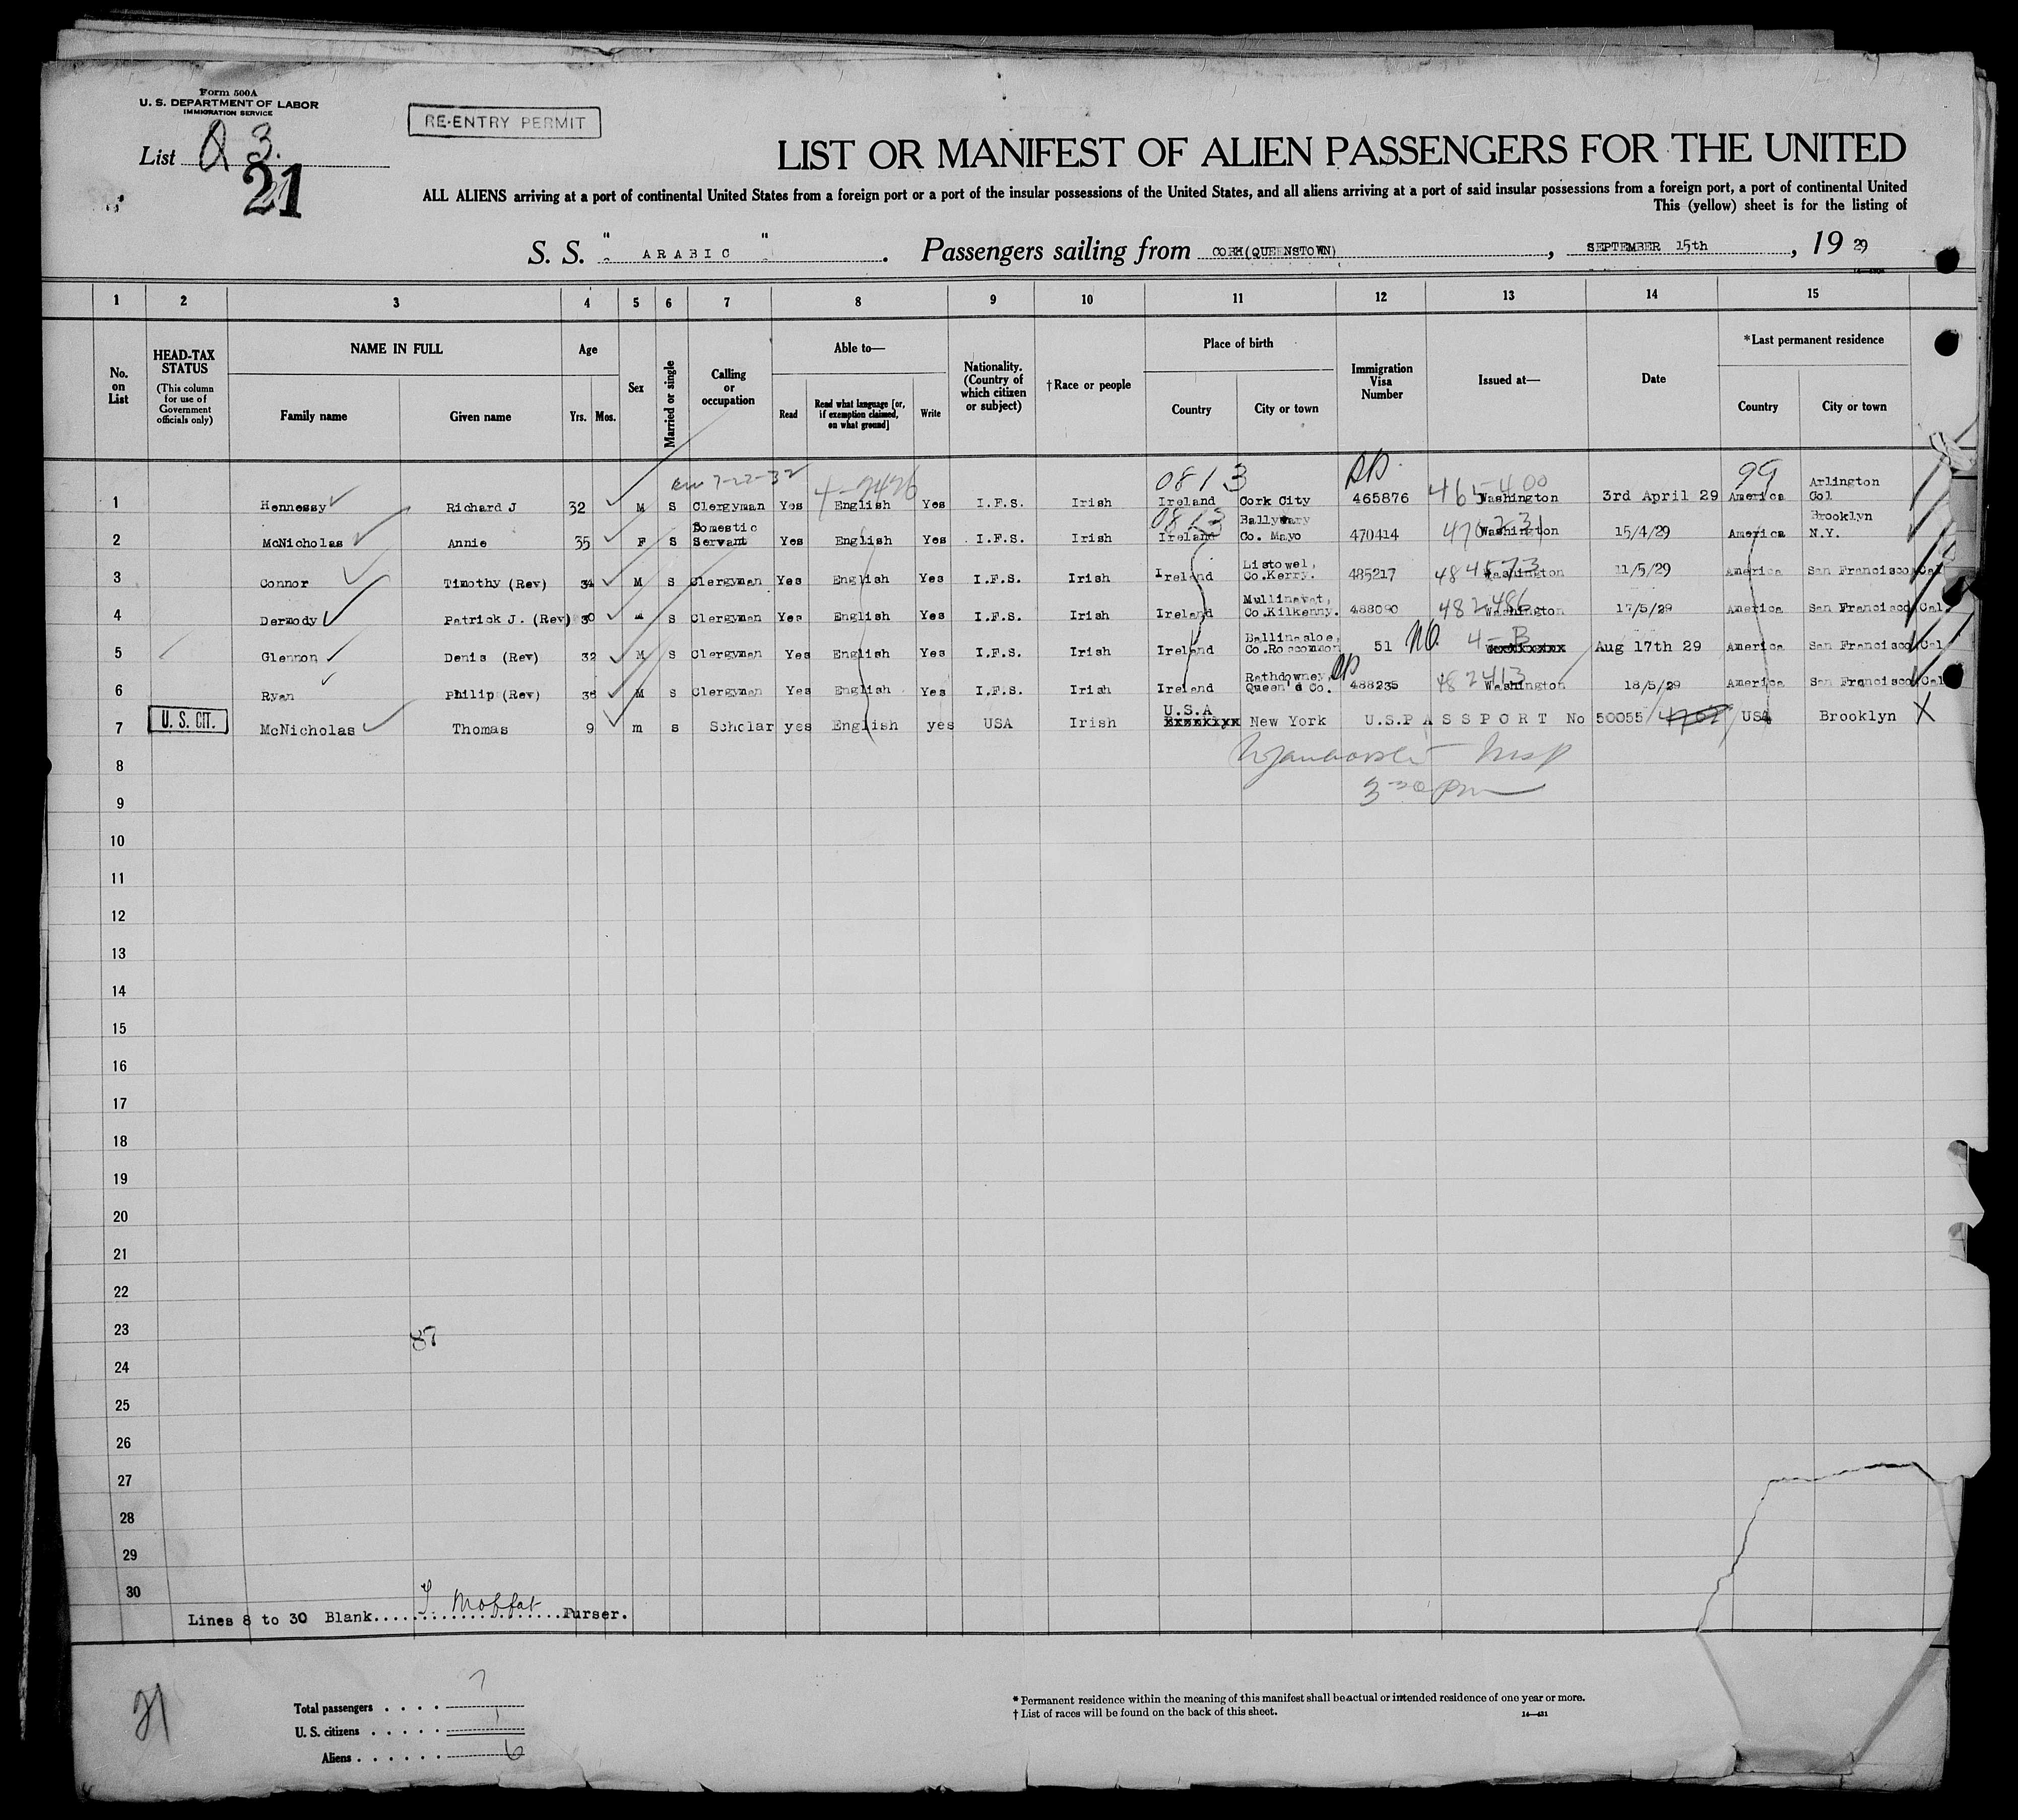 Form 500A
U. S. DEPARTMENT OF LABOR
IMMIGRATION SERVICE
RE-ENTRY PERMIT
List Q 3.
21
LIST OR MANIFEST OF ALIEN PASSENGERS FOR THE UNITED
ALL ALIENS arriving at a port of continental United States from a foreign port or a port of the insular possessions of the United States, and all aliens arriving at a port of said insular possessions from a foreign port, a port of continental United
This (yellow) sheet is for the listing of
S. S. " ARABIC " . Passengers sailing from CORH(QUEENSTOWN) , SEPTEMBER 15th , 19 29
1 2 3 4 5 6 7 8 9 10 11 12 13 14 15
No. on List
HEAD-TAX STATUS (This column for use of Government officials only)
NAME IN FULL
Family name Given name
Age
Yrs. Mos.
Sex
Married or single
Calling or occupation
Able to—
Read Read what language [or, if exemption claimed, on what ground] Write
Nationality. (Country of which citizen or subject)
†Race or people
Place of birth
Country City or town
Immigration Visa Number
Issued at—
Date
*Last permanent residence
Country City or town
7-22-32 0813 99
1 Hennessy Richard J 32 M S Clergyman Yes English Yes I.F.S. Irish Ireland Cork City 465876 465400 Washington 3rd April 29 America Arlington Col.
0813
2 McNicholas Annie 35 F S Domestic Servant Yes English Yes I.F.S. Irish Ireland Co. Mayo 470414 Washington 15/4/29 America Brooklyn N.Y.
3 Connor Timothy (Rev) 34 M S Clergyman Yes English Yes I.F.S. Irish Ireland Listowel, Co.Kerry. 485217 Washington 11/5/29 America San Francisco Cal
4 Dermody Patrick J. (Rev) 30 M S Clergyman Yes English Yes I.F.S. Irish Ireland Mullinavat, Co.Kilkenny. 488090 482486 Washington 17/5/29 America San Francisco Cal
5 Glennon Denis (Rev) 32 M S Clergyman Yes English Yes I.F.S. Irish Ireland Ballinasloe, Co.Roscommon 51 NO. 4-B Aug 17th 29 America San Francisco Cal
6 Ryan Philip (Rev) 36 M S Clergyman Yes English Yes I.F.S. Irish Ireland Rathdowney, Queen's Co. 488235 482413 Washington 18/5/29 America San Francisco Cal
7 U. S. CIT. McNicholas Thomas 9 m s Scholar yes English yes USA Irish U.S.A New York U.S.PASSPORT No 50055 USA Brooklyn X
8
9
10
11
12
13
14
15
16
17
18
19
20
21
22
23
87
24
25
26
27
28
29
30
Lines 8 to 30 Blank.... Moffat ....Purser.
21
Total passengers . . . . 7
U. S. citizens . . . . . 1
Aliens . . . . . . 6
* Permanent residence within the meaning of this manifest shall be actual or intended residence of one year or more.
† List of races will be found on the back of this sheet.